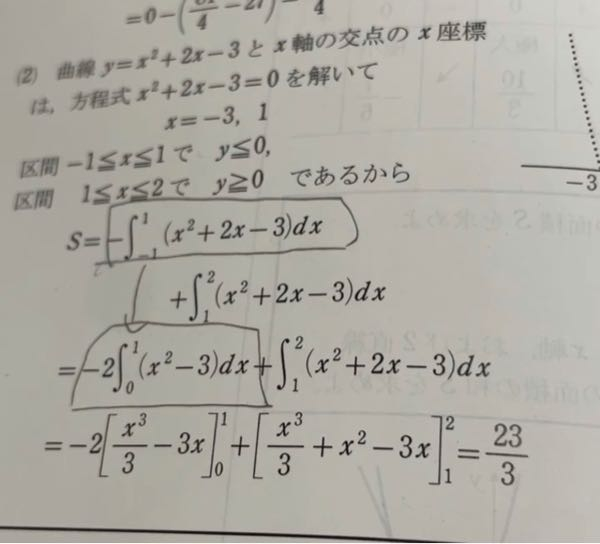 =0-( /4 -27)- /4
(2) 曲線 y=x²+2x-3 と x 軸の交点の x 座標
は，方程式 x²+2x-3=0 を解いて
x=-3, 1
区間 -1≦x≦1 で y≦0,
区間 1≦x≦2 で y≧0 であるから
S=-∫_{-1}^{1}(x²+2x-3)dx
+∫_{1}^{2}(x²+2x-3)dx
=-2∫_{0}^{1}(x²-3)dx+∫_{1}^{2}(x²+2x-3)dx
=-2[x³/3-3x]_{0}^{1}+[x³/3+x²-3x]_{1}^{2}=23/3
-3